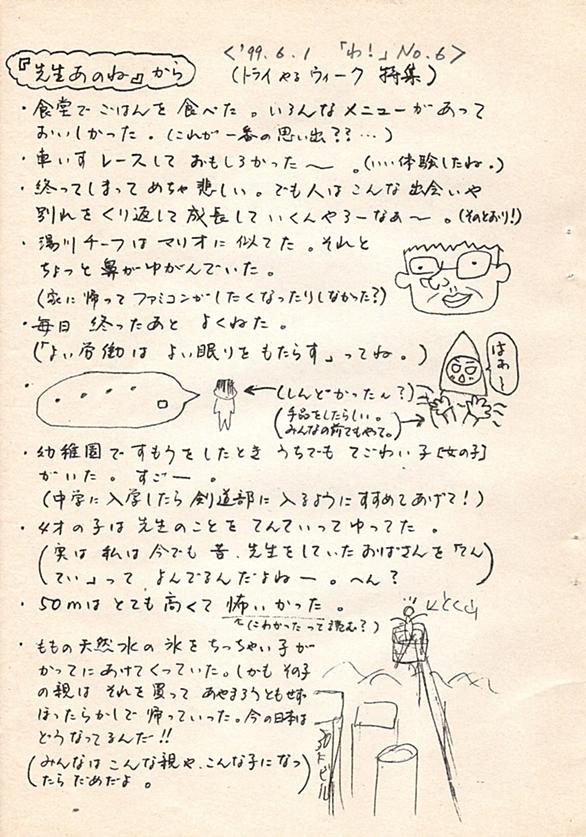 『先生あのね』から
<'99.6.1 「わ!」No.6>
(トライやるウィーク 特集)
・食堂でごはんを食べた。いろんなメニューがあって
おいしかった。(これが一番の思い出??…)
・車いすレースしておもしろかった〜。(いい体験したね。)
・終ってしまってめちゃ悲しい。でも人はこんな出会いや
別れをくり返して成長していくんやろーなぁ〜。(そのとおり!)
・湯川チーフはマリオに似てた。それと
ちょっと鼻がゆがんでいた。
(家に帰ってファミコンがしたくなったりしなかった?)
・毎日 終ったあと よくねた。
(「よい労働は よい眠りをもたらす」ってね。)
はぁ〜
(しんどかったん?)
(手品をしたらしい。
みんなの前でもやって。)
・幼稚園ですもうをしたとき うちでも てごわい子[女の子]
がいた。すごーー。
(中学に入学したら 剣道部に入るようにすすめてあげて!)
・4才の子は先生のことを てんていってゆってた。
(実は私は今でも昔、先生をしていたおばさんを「てん
てい」って よんでるんだよねー。へん?)
・50mはとても高くて 怖いかった。
(こわかったって読む?)
・ももの天然水の氷をちっちゃい子が
かってにあけてくっていた。しかもその子
の親は それを買って あやまろうともせず
ほったらかしで帰っていった。今の日本は
どうなってるんだ!!
(みんなはこんな親や、こんな子になっ
たらだめだよ。)